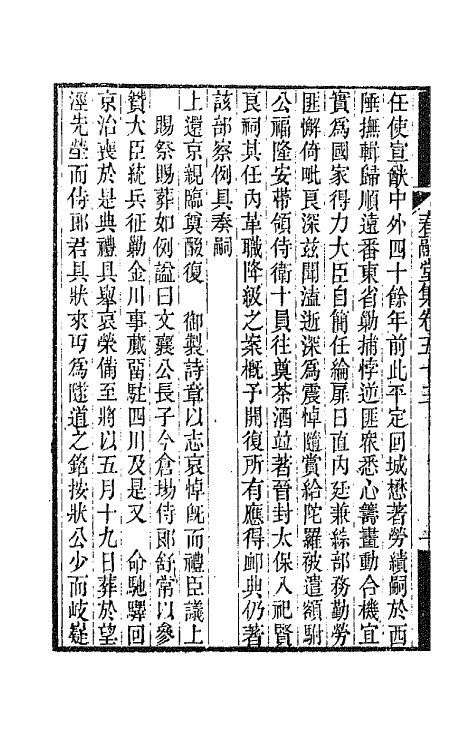 任使宣猷中外四十餘年前此平定回城懋著勞績嗣於西
陲撫輯歸順遠番東省勦捕悖逆匪衆悉心籌畫動合機宜
實爲國家得力大臣自簡任綸扉日直内廷兼綜部務勤勞
匪懈倚毗良深兹聞溘逝深爲震悼隨賞給陀羅被遣額駙
公福隆安帶領侍衛十員往奠茶酒竝著晉封太保入祀賢
良祠其任内革職降級之案概予開復所有應得䘏典仍著
該部察例具奏嗣
上還京親臨奠醊復　御製詩章以志哀悼旣而禮臣議上
　賜祭賜葬如例諡曰文襄公長子今倉場侍郎舒常以參
贊大臣統兵征勦金川事蕆畱駐四川及是又　命馳驛回
京治喪於是典禮具舉哀榮備至將以五月十九日葬於望
溼先塋而侍郎君具狀來丐爲隧道之銘按狀公少而岐嶷
春融堂集卷五十三